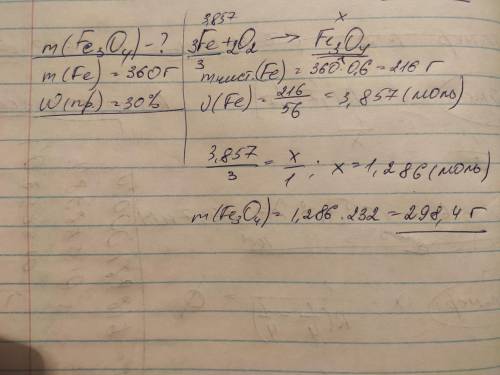 m(Fe₃O₄) - ?
m(Fe) = 360г
ω(пр) = 30%
3,857 x
3Fe + 2O₂ → Fe₃O₄
3 1
mчист.(Fe) = 360·0,6 = 216 г
ν(Fe) = 216/56 = 3,857 (моль)
3,857/3 = x/1 ; x = 1,286 (моль)
m(Fe₃O₄) = 1,286 · 232 = 298,4 г